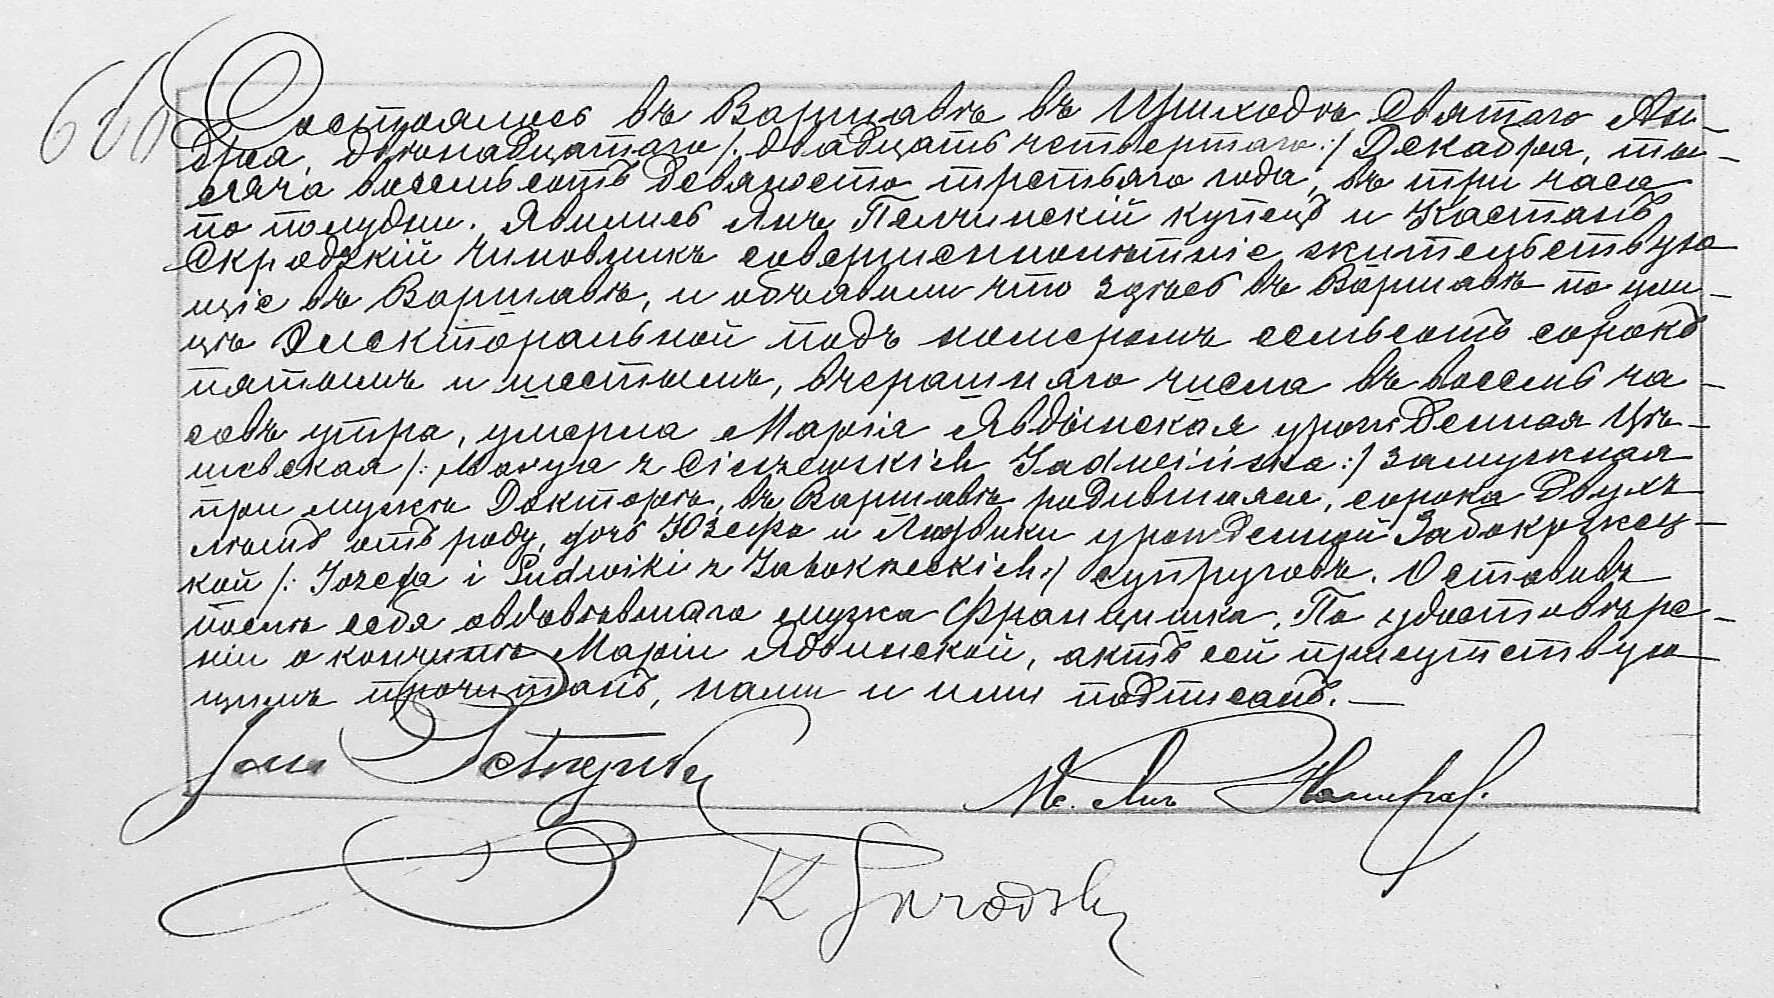 Состоялось въ Варшавѣ въ Приходѣ Святаго Ан-
дрея, двѣнадцатаго /: двадцать четвертаго :/ Декабря, ты-
сяча восемьсотъ девяносто третьяго года, въ три часа
по полудни. Явились Янъ Пелчинскій купецъ и Каетанъ
Скродзкій чиновникъ совершеннолѣтніе, жительствую
щіе въ Варшавѣ, и объявили что здѣсь въ Варшавѣ по ули-
цѣ Электоральной подъ номеромъ семьсотъ сорокъ
пятымъ и шестымъ, вчерашняго числа въ восемь ча-
совъ утра, умерла Марія Ядвинская урожденная Цѣ-
шевская /: Marya z Cieszewskich Jadwińska :/ замужная
при мужѣ Докторѣ, въ Варшавѣ родившаяся, сорока двухъ
лѣтъ отъ роду, дочь Юзефа и Людвики урожденной Забокржец-
кой /: Józefa i Ludwiki z Zabokrzeckich :/ супруговъ. Оставивъ
послѣ себя овдовѣвшаго мужа Францишка. По удостовѣре-
ніи о кончинѣ Маріи Ядвинской, актъ сей присутствую
щимъ прочитанъ, нами и ими подписанъ. —
Янъ
К